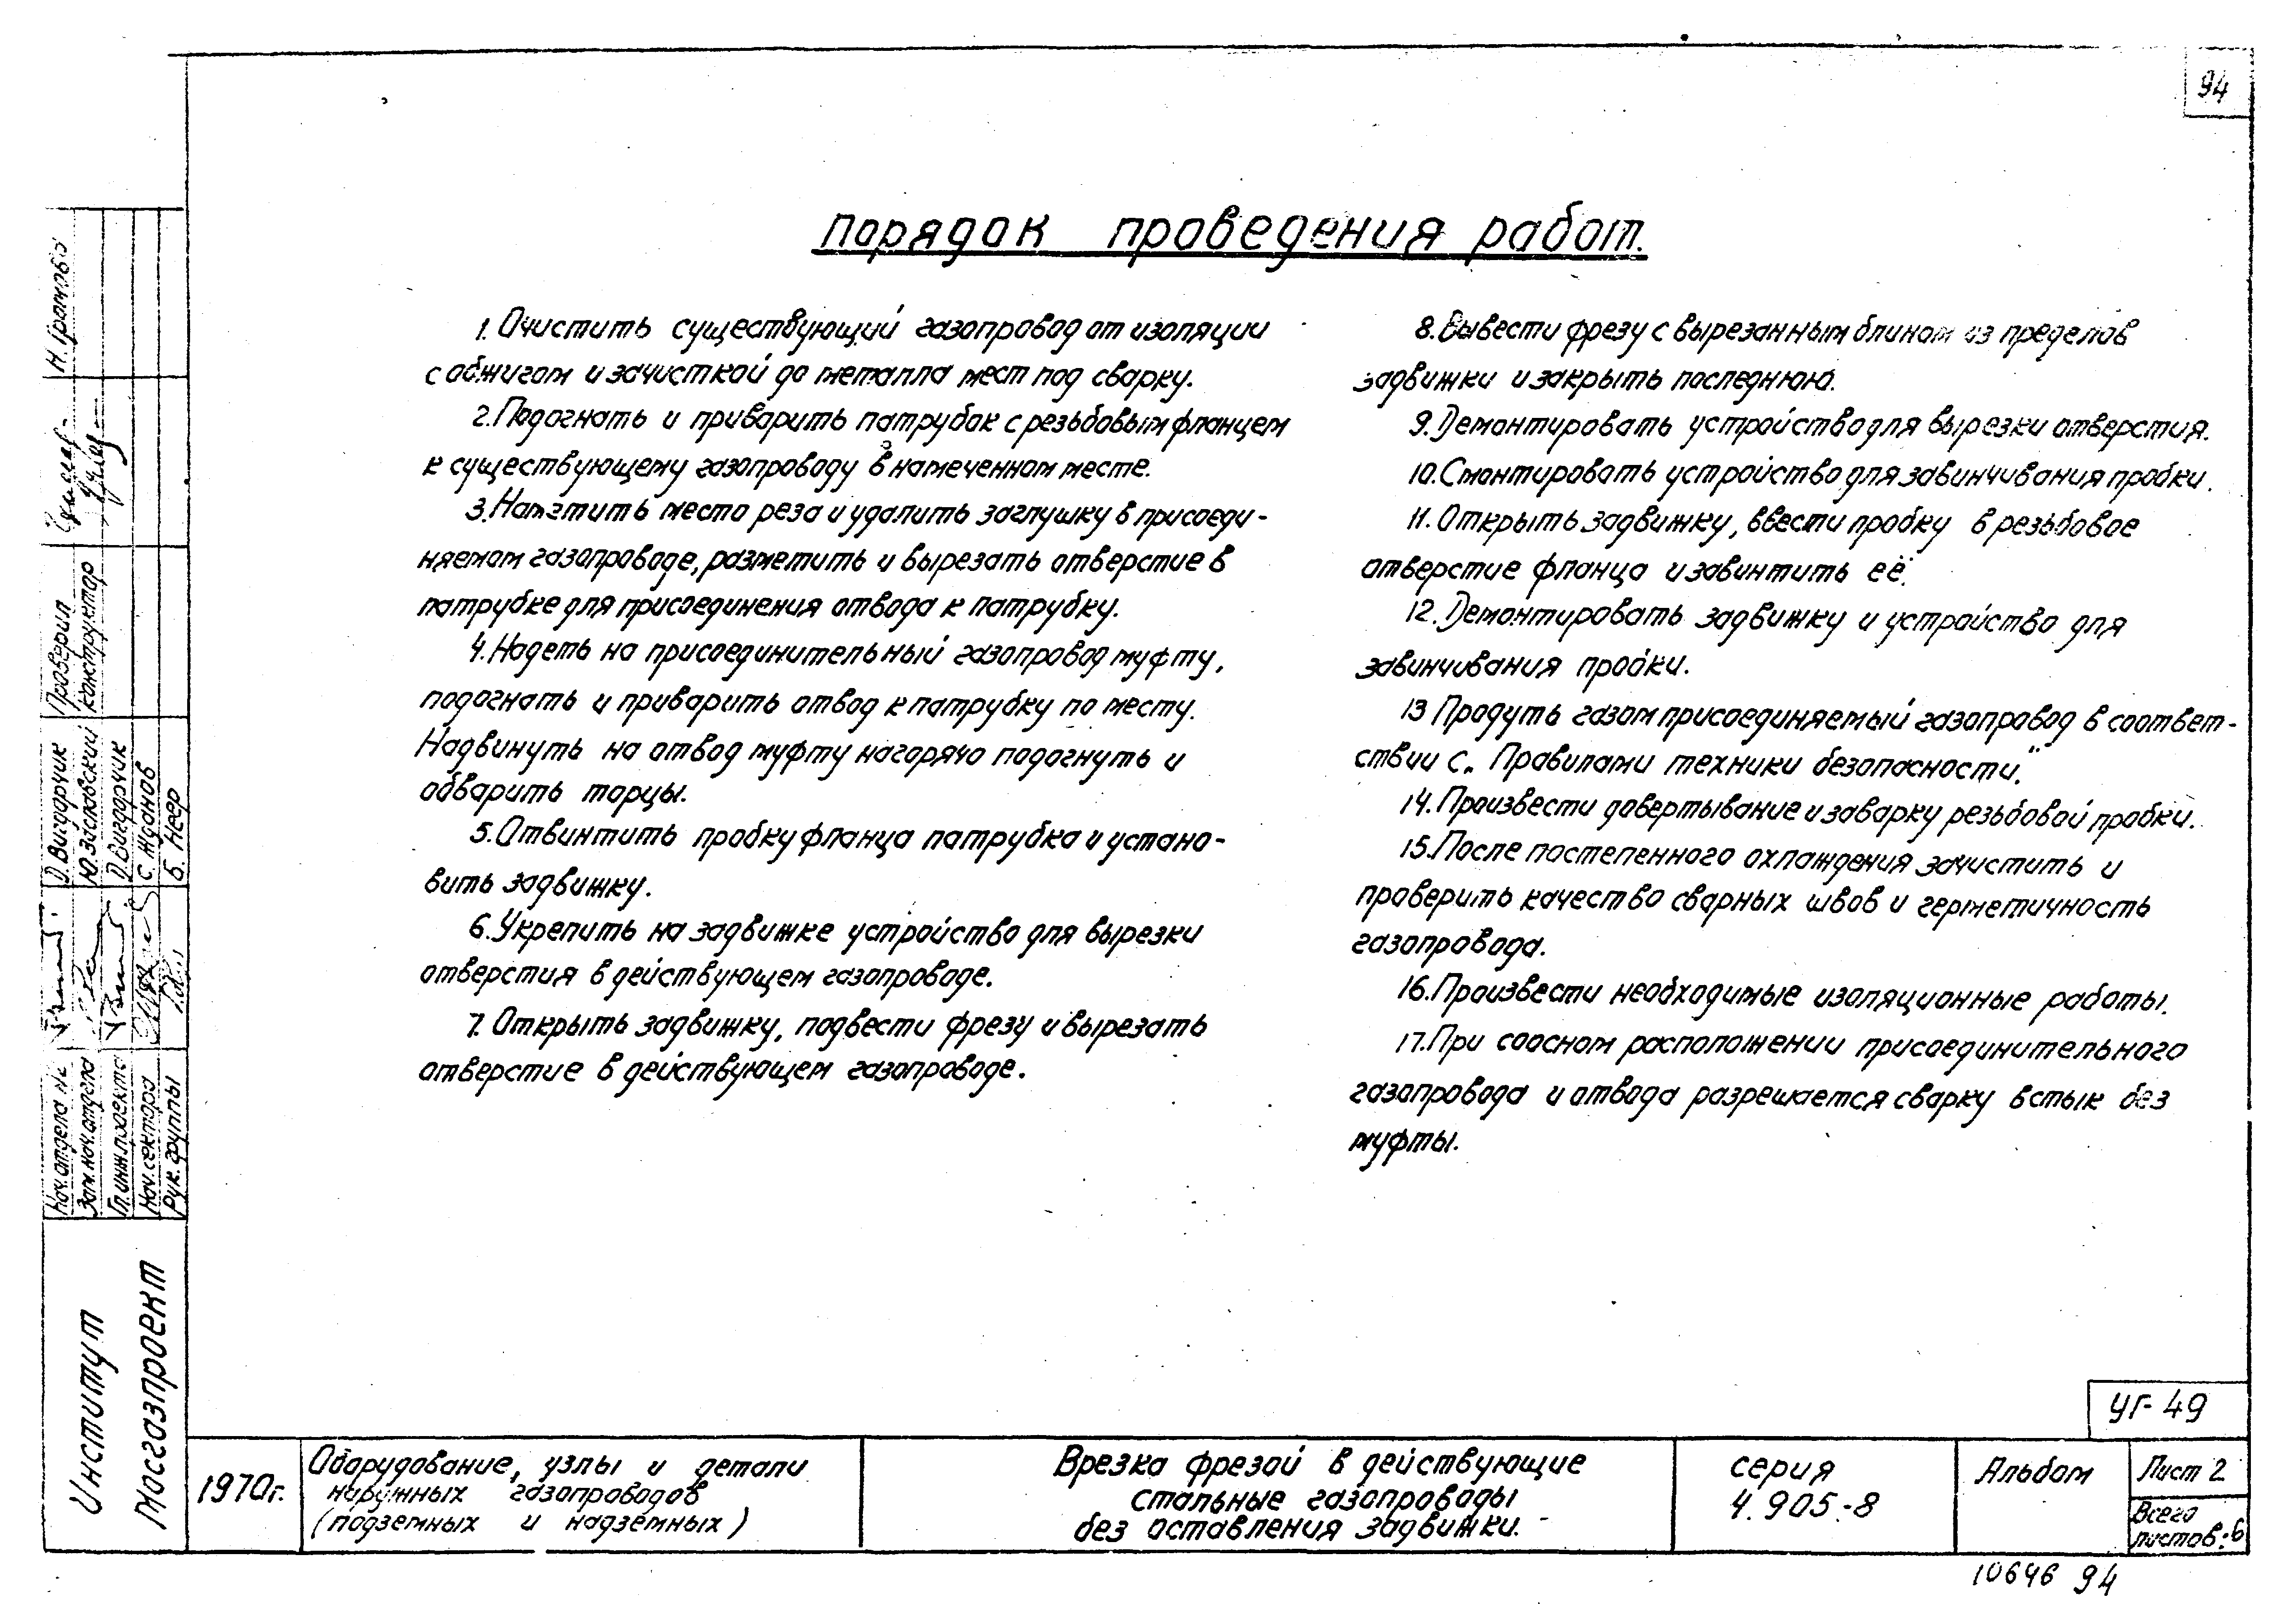 94
Порядок проведения работ.
1. Очистить существующий газопровод от изоляции
с обжигом и зачисткой до металла мест под сварку.
2. Подогнать и приварить патрубок с резьбовым фланцем
к существующему газопроводу в намеченном месте.
3. Наметить место реза и удалить заглушку в присоеди-
няемом газопроводе, разметить и вырезать отверстие в
патрубке для присоединения отвода к патрубку.
4. Надеть на присоединительный газопровод муфту,
подогнать и приварить отвод к патрубку по месту.
Надвинуть на отвод муфту нагорячо подогнуть и
обварить торцы.
5. Отвинтить пробку фланца патрубка и устано-
вить задвижку.
6. Укрепить на задвижке устройство для вырезки
отверстия в действующем газопроводе.
7. Открыть задвижку, подвести фрезу и вырезать
отверстие в действующем газопроводе.
8. Вывести фрезу с вырезанным блином из пределов
задвижки и закрыть последнюю.
9. Демонтировать устройство для вырезки отверстия.
10. Смонтировать устройство для завинчивания пробки.
11. Открыть задвижку, ввести пробку в резьбовое
отверстие фланца и завинтить её.
12. Демонтировать задвижку и устройство для
завинчивания пробки.
13 Продуть газом присоединяемый газопровод в соответ-
ствии с „Правилами техники безопасности."
14. Произвести довертывание и заварку резьбовой пробки.
15. После постепенного охлаждения зачистить и
проверить качество сварных швов и герметичность
газопровода.
16. Произвести необходимые изоляционные работы.
17. При соосном расположении присоединительного
газопровода и отвода разрешается сварку встык без
муфты.
Н. Громова
Проверил
Конструктор
Д. Вигдорчик
Ю. Заславский
Д. Вигдорчик
С. Жданов
Б. Неер
Нач. отдела
Зам. нач. отдела
Гл. инж. проекта
Нач. сектора
Рук. группы
Институт
Мосгазпроект
УГ-49
1970г.
Оборудование, узлы и детали
наружных газопроводов
(подземных и надземных)
Врезка фрезой в действующие
стальные газопроводы
без оставления задвижки.
серия
4.905-8
Альбом
Лист 2
Всего
листов-6
10646 94